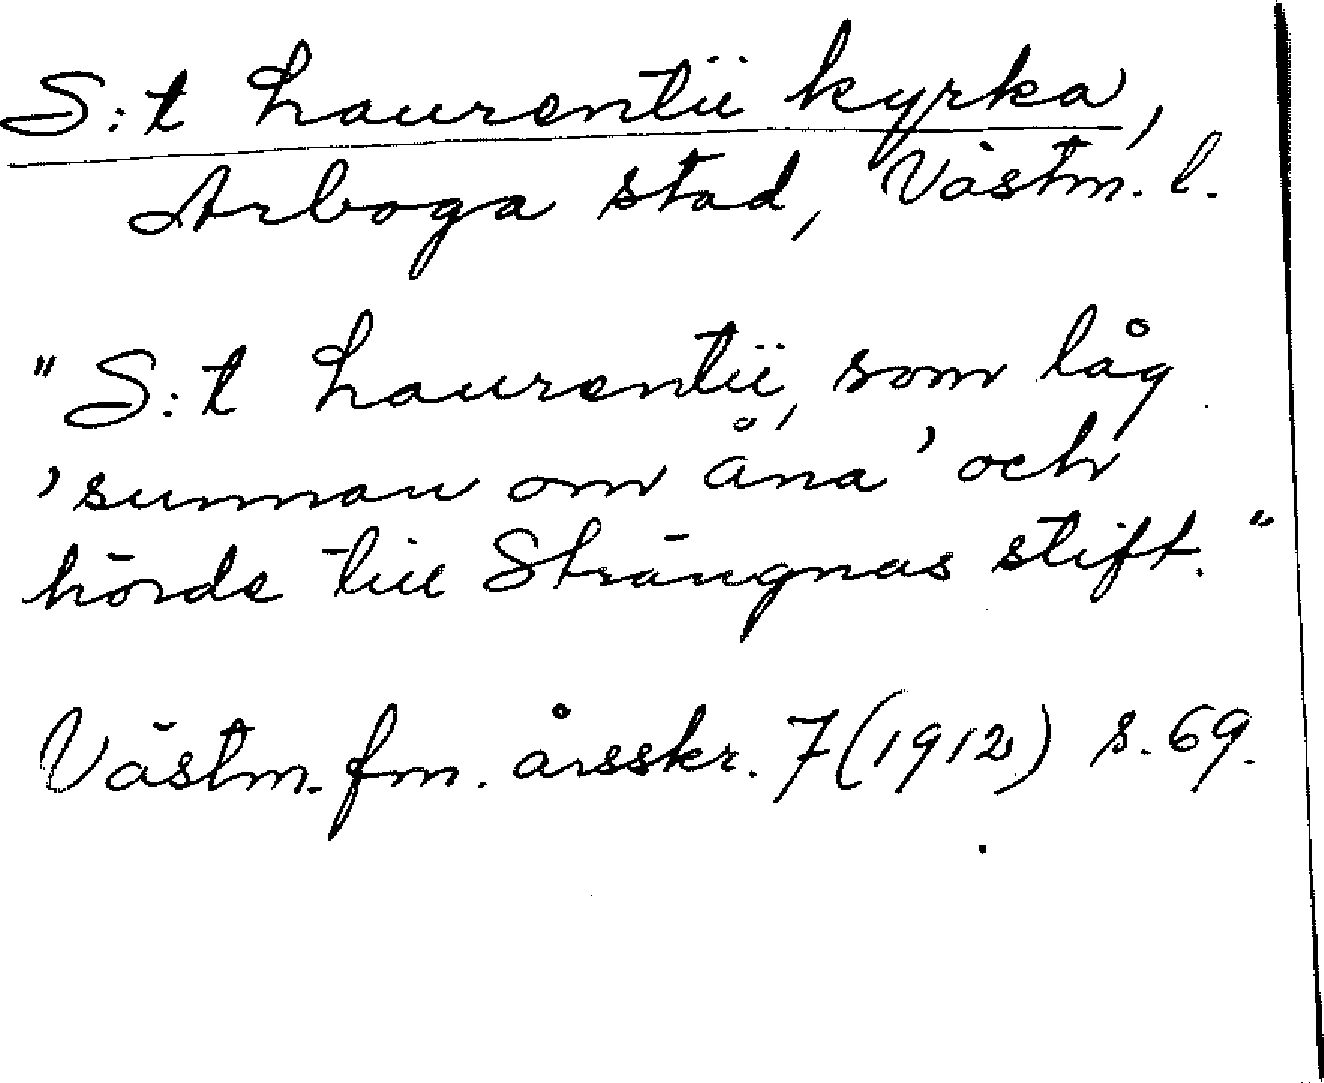 S:t Laurentii kyrka,
Arboga stad, Västm. l.
"S:t Laurentii, som låg
'sunnan om åna' och
hörde till Strängnäs stift."
Västm. fm. årsskr. 7 (1912) s. 69.